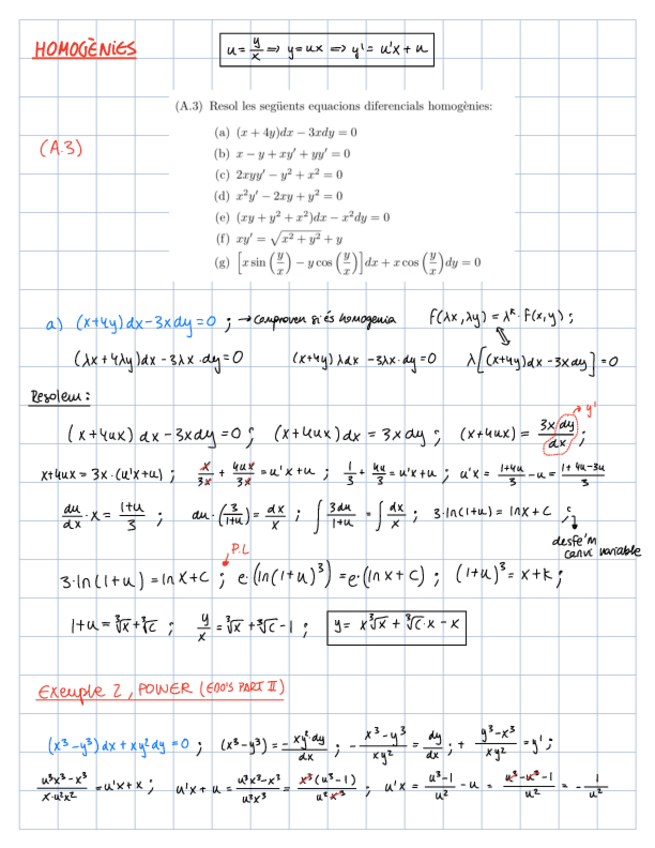 HOMOGÈNIES
u = y/x ⟹ y = ux ⟹ y' = u'x + u
(A.3) Resol les següents equacions diferencials homogènies:
(A.3)
(a) (x + 4y)dx − 3xdy = 0
(b) x − y + xy' + yy' = 0
(c) 2xyy' − y² + x² = 0
(d) x²y' − 2xy + y² = 0
(e) (xy + y² + x²)dx − x²dy = 0
(f) xy' = √(x² + y²) + y
(g) [x sin(y/x) − y cos(y/x)]dx + x cos(y/x)dy = 0
a) (x+4y)dx-3xdy=0 ; → Comprovem si és homogenia f(λx,λy) = λᵏ·f(x,y) ;
(λx+4λy)dx - 3λx·dy=0 (x+4y)λdx - 3λx·dy=0 ⇕ λ[(x+4y)dx - 3xdy]=0
Resolem:
(x+4ux)dx - 3xdy=0 ; (x+4ux)dx = 3xdy ; (x+4ux) = 3x dy/dx ; → y'
x+4ux = 3x·(u'x+u) ; x/3x + 4ux/3x = u'x+u ; 1/3 + 4u/3 = u'x+u ; u'x = (1+4u)/3 - u = (1+4u-3u)/3
du/dx · x = (1+u)/3 ; du·(3/(1+u)) = dx/x ; ∫ 3du/(1+u) = ∫ dx/x ; 3·ln(1+u) = lnx + C ;
desfe'm canvi variable
P.L
3·ln(1+u) = lnx+C ; e·(ln(1+u)³) = e·(lnx+c) ; (1+u)³ = x+k ;
1+u = ∛x + ∛c ; y/x = ∛x + ∛c - 1 ; y = x∛x + ∛c·x - x
Exemple 2, POWER (EDO'S PART II)
(x³-y³)dx + xy²dy = 0 ; (x³-y³) = - xy²·dy/dx ; - (x³-y³)/xy² = dy/dx ; + (y³-x³)/xy² = y' ;
(u³x³-x³)/(x·u²x²) = u'x+x ; u'x+u = (u³x³-x³)/u²x³ = x³(u³-1)/u²x³ ; u'x = (u³-1)/u² - u = (u³-u³-1)/u² = - 1/u²